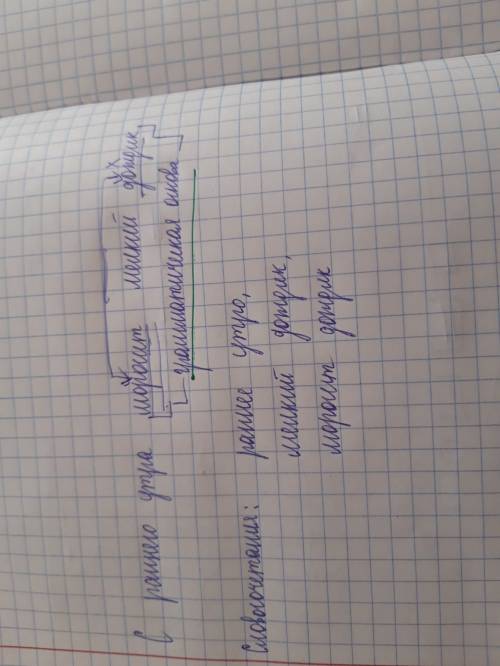 С раннего утра моросит мелкий дождик,
грамматическая основа
Словосочетания: раннее утро,
мелкий дождик,
моросит дождик